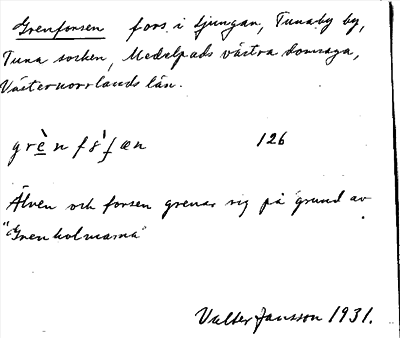 Grenforsen fors i Ljungan, Tunaby by,
Tuna socken, Medelpads västra domsaga,
Västernorrlands län.
126
Älven och forsen grenar sig på grund av
"Grenholmarna"
Valter Jansson 1931.